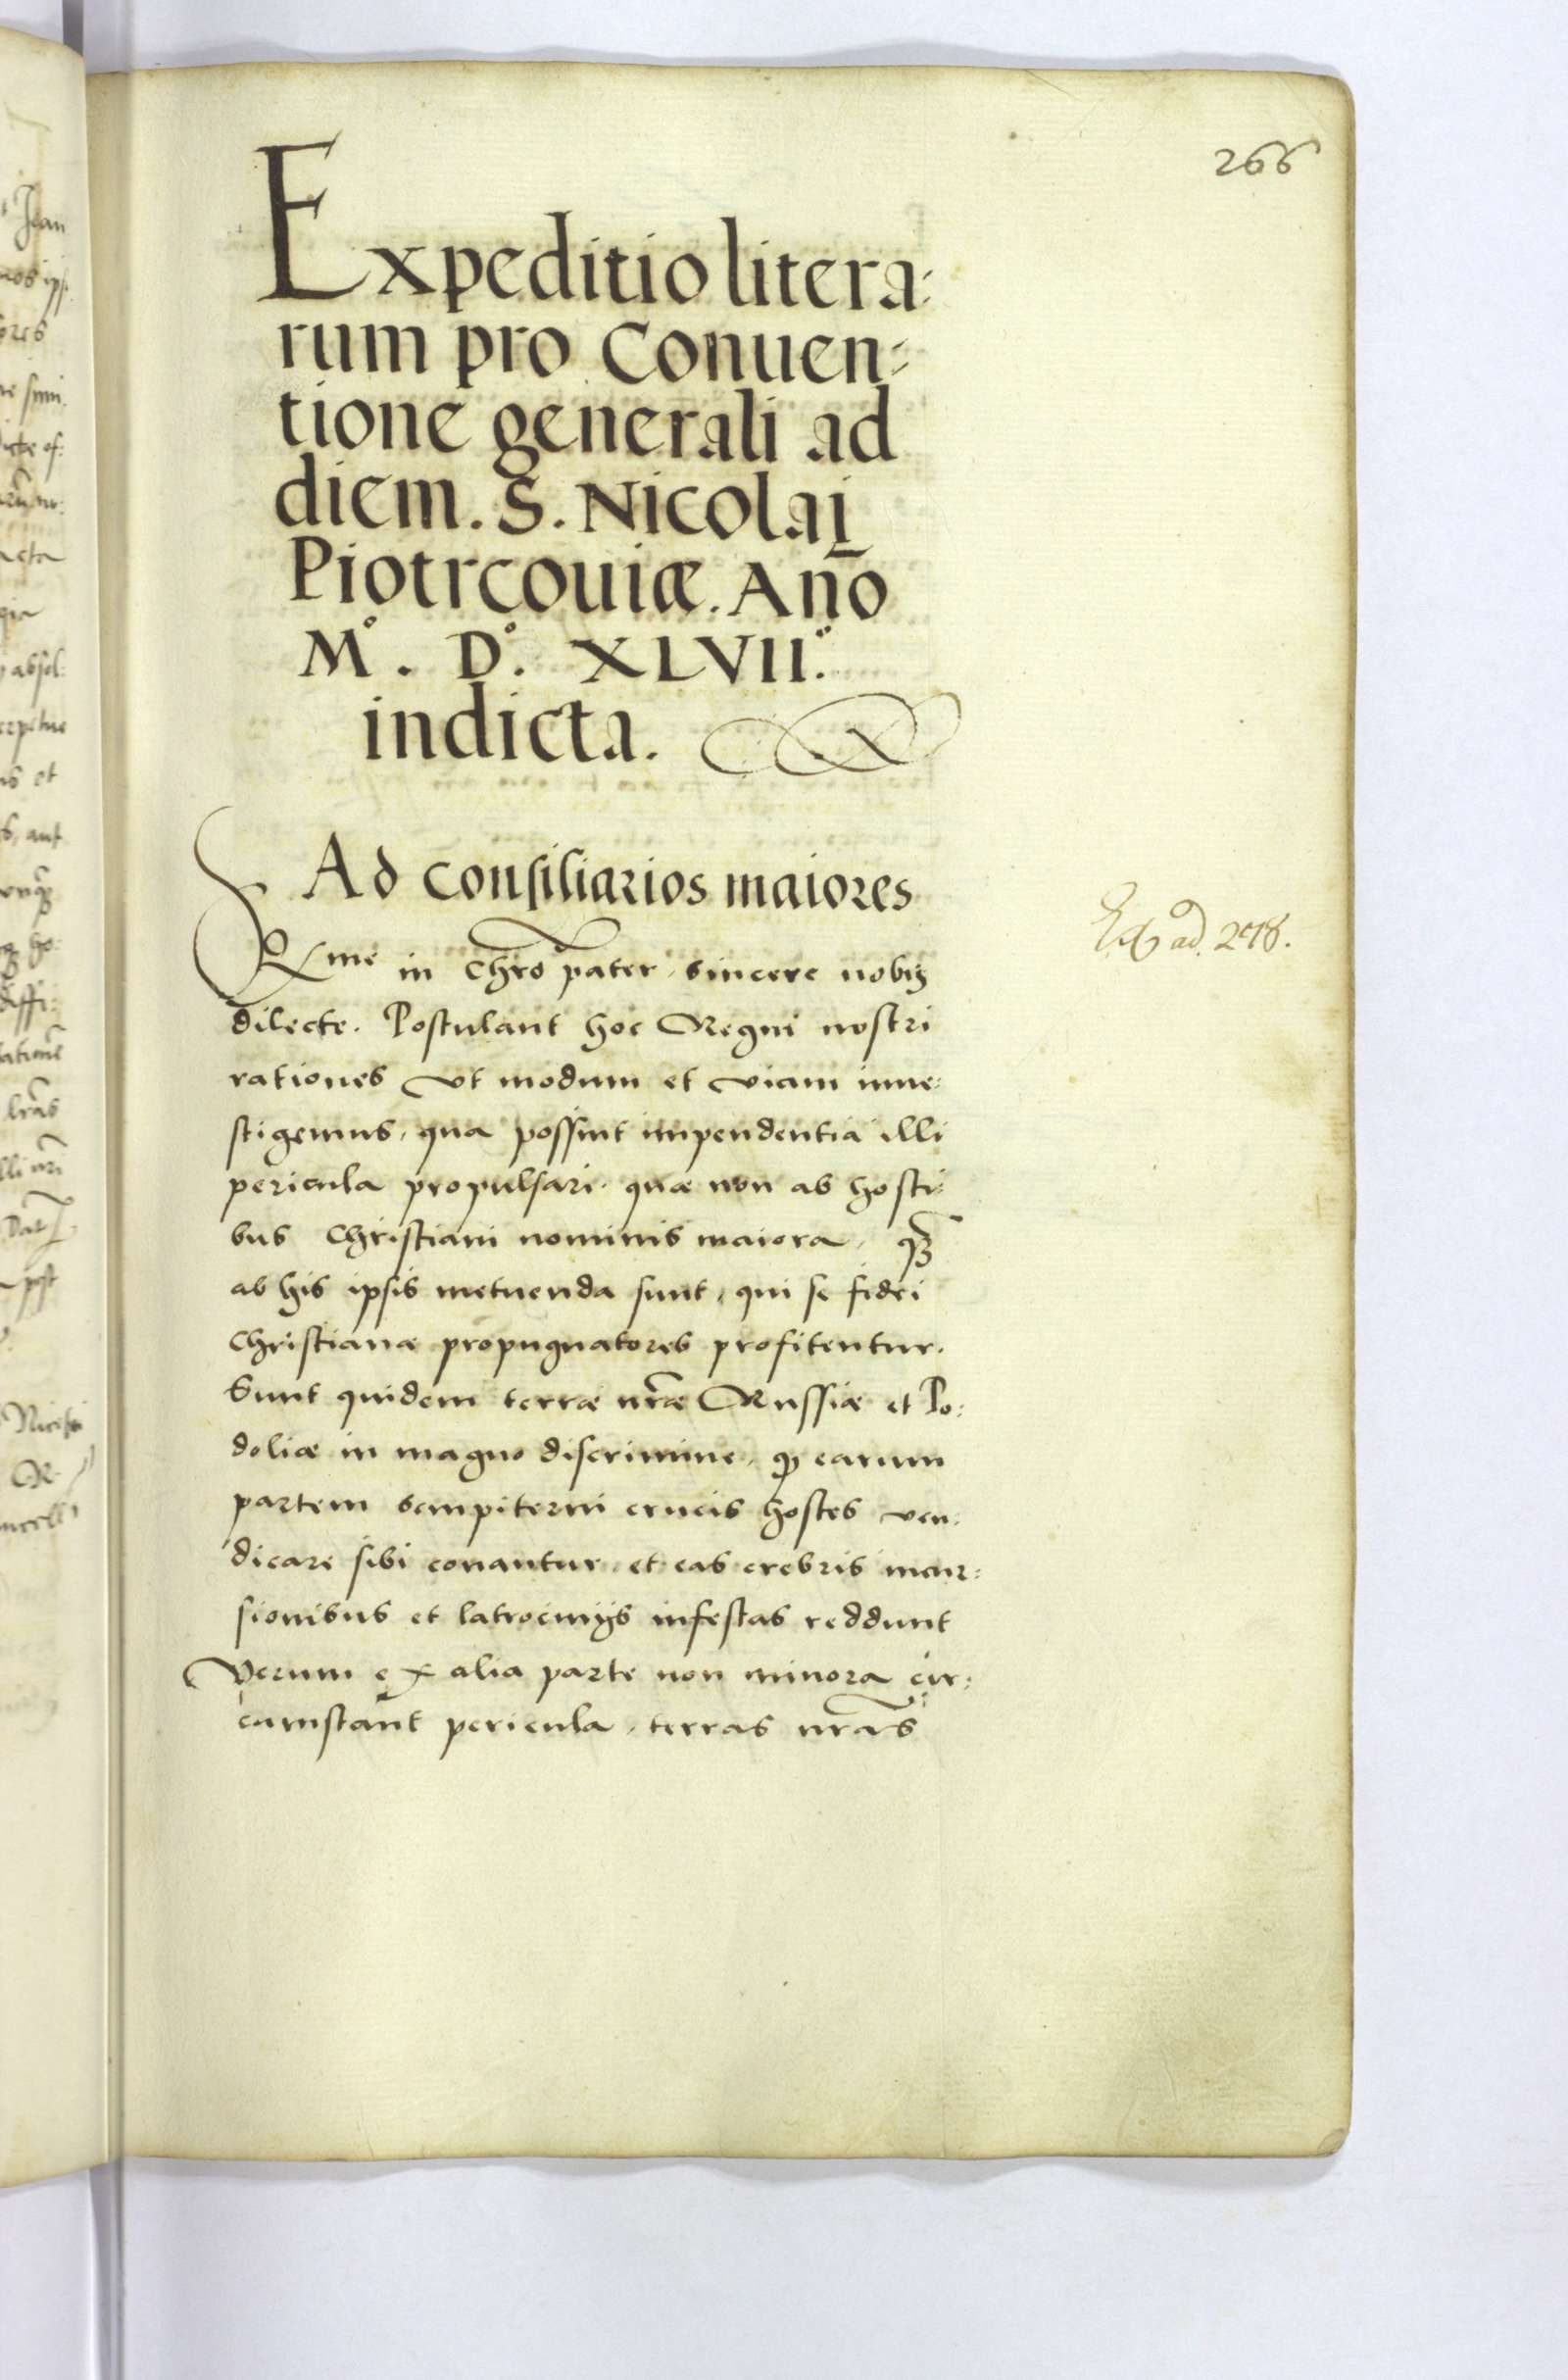 266
Expeditio litera:
rum pro Conuen:
tione generali ad
diem. S. Nicolai
Piotrcouiæ. Año
M°. D°. XLVII°.
indicta.
Ad consiliarios maiores
Rme in Chro pater, sincere nobis
dilecte. Postulant hoc Regni nostri
rationes vt modum et viam inue:
stigemus, qua possint impendentia illi
pericula propulsari, quæ non ab hosti:
bus Christiani nominis maiora, qȝ
ab his ipsis metuenda sunt, qui se fidei
Christianæ propugnatores profitentur.
Sunt quidem terræ nr̃æ Russiæ et Po:
doliæ in magno discrimine, qͻ earum
partem sempiterni crucis hostes ven:
dicare sibi conantur, et eas crebris incur:
sionibus et latrocinijs infestas reddunt
Verum ex alia parte non minora cir:
cumstant pericula, terras nr̃as
ad. 278.